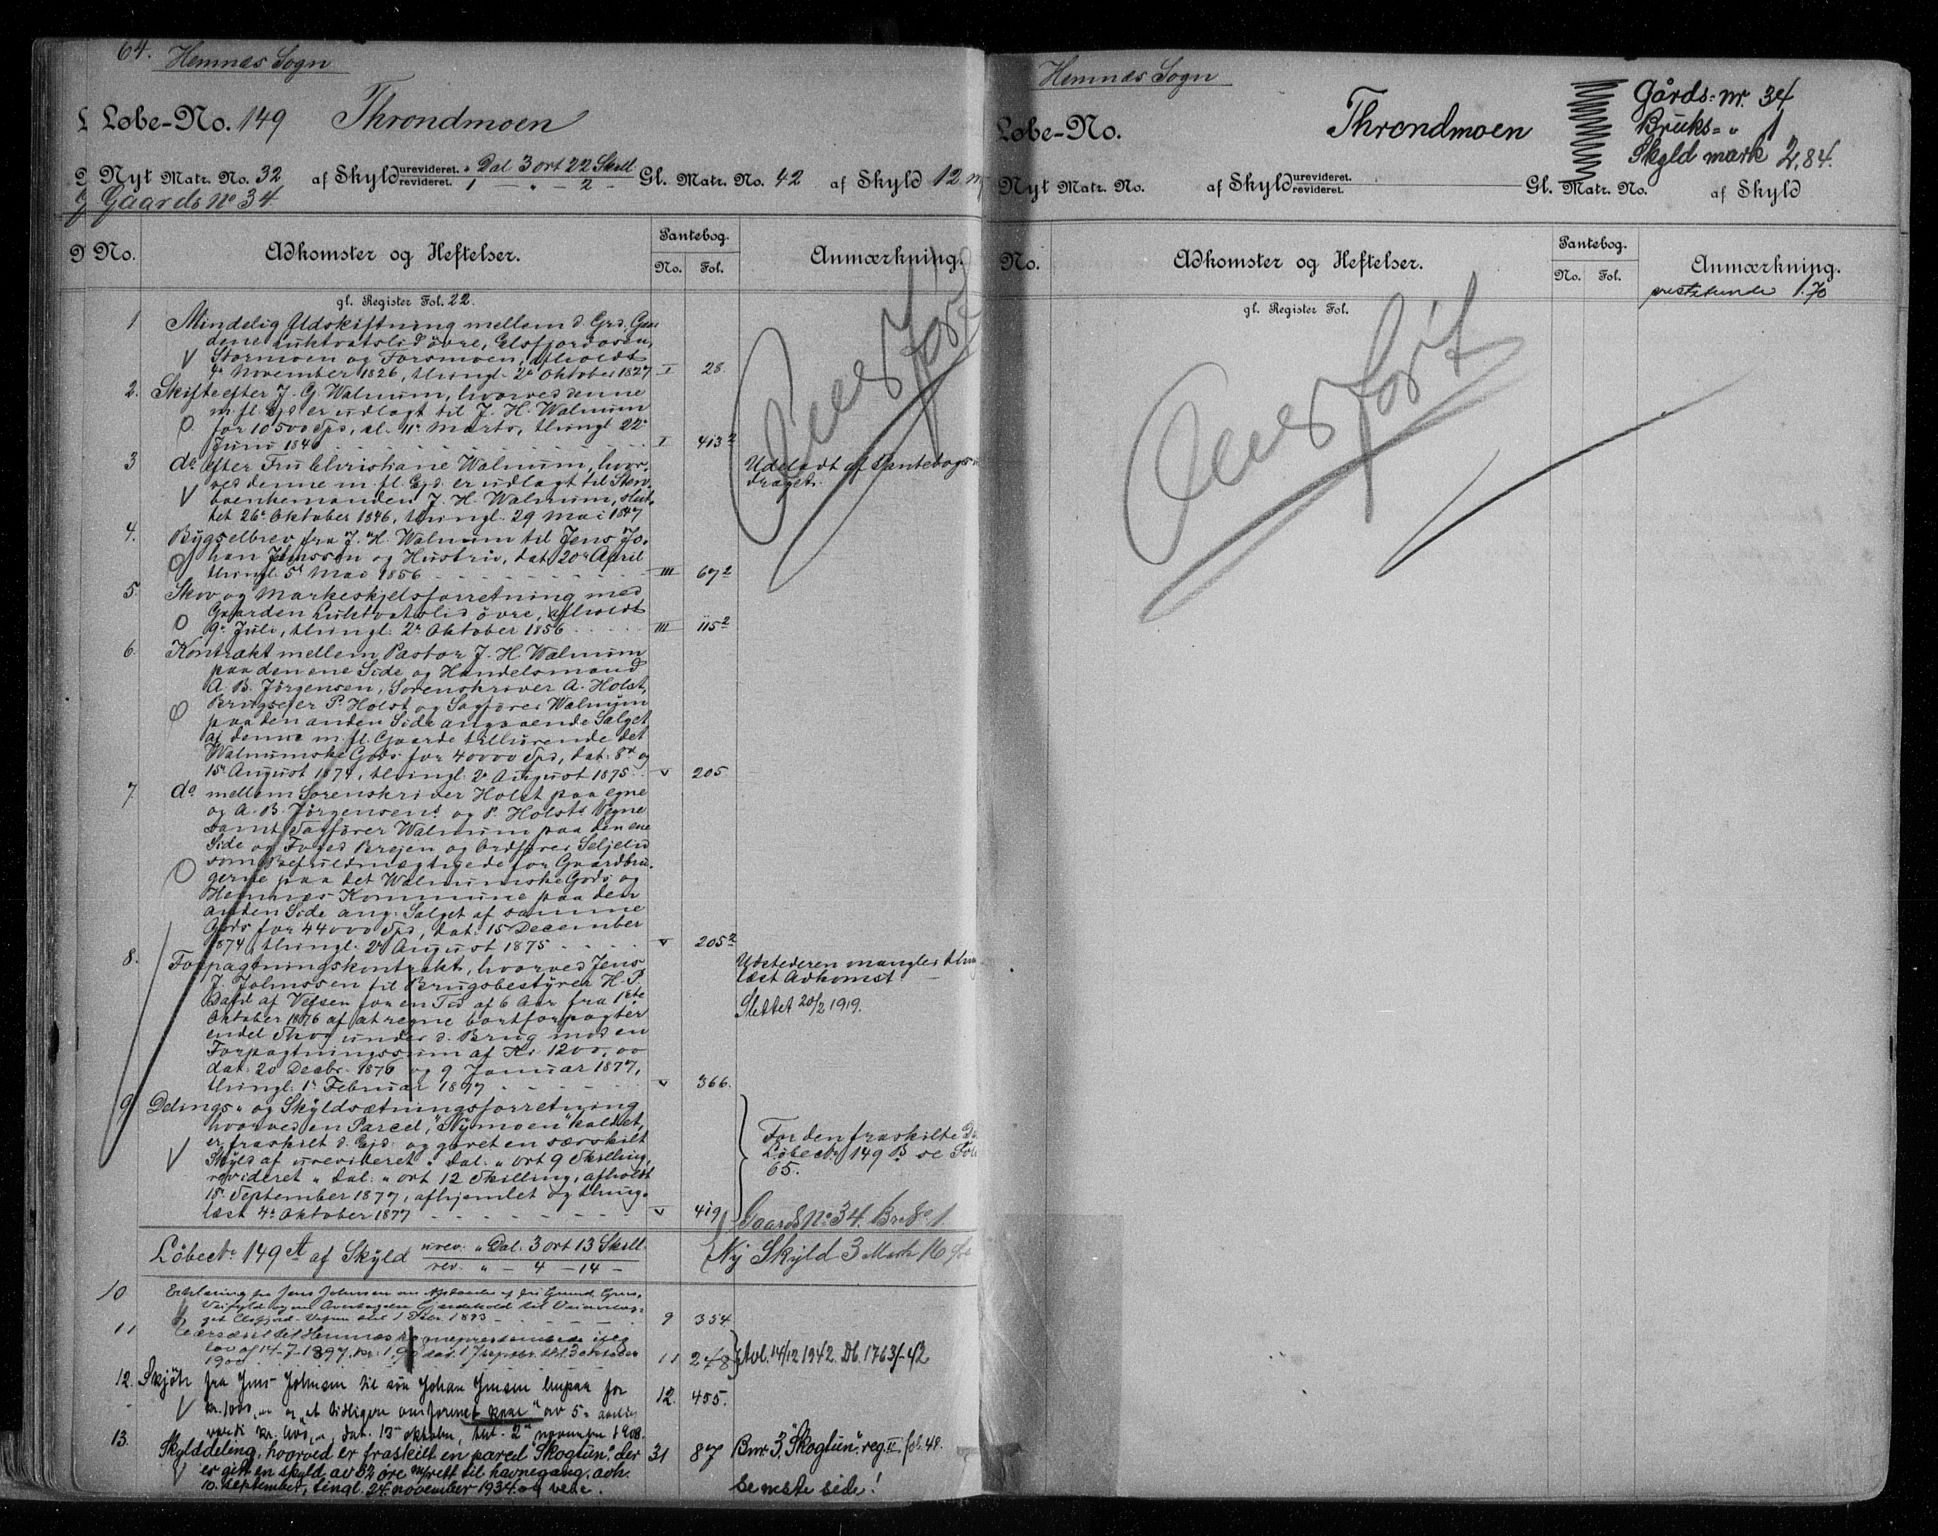 64. Hemnæs Sogn
Løbe-No. 149 Throndmoen
Nyt Matr. No. 32 af Skyld urevideret. " Dal 3 ort 22 Skill. revideret. 1 — " — 2 — Gl. Matr. No. 42 af Skyld 12
Gaards No 34.
No. Adkomster og Heftelser. Pantebog. No. Fol. Anmærkning.
gl. Register Fol. 22.
1 Mindelig Udskiftning mellem d. Grd.
dene Luktvatslid øvre, Elsfjordosen,
Stormoen og Forsmoen, afholdt
4. November 1826, thingl. 2 Oktober 1827 I 28.
2. Skifte efter J. G. Walnum, hvorved denne
m. fl. Ejd er udlagt til J. H. Walnum
for 10500 Spd, sl. 11 Marts, thingl 22
Juni 1840 I 413
3 do efter Fru Christiane Walnum, hvor-
ved denne m. fl. Ejd. er udlagt til
J. H. Walnum, slut-
tet 26 Oktober 1846, thingl. 29 Mai 1847
Udeladt af Pantebogs
draget.
4. Bygselbrev fra J. H. Walnum til Jens Jo-
han Johnssen og Hustru, dat 20 April
thingl. 5 Mai 1856 III 67
5. Skov og Markeskjelsforretning med
Gaarden Luktvatslid øvre, afholdt
9. Juli, thingl. 2 Oktober 1856 III 115
6. Kontrakt mellem Pastor J. H. Walnum
paa den ene Side og Handelsmand
A. B. Jørgensen, Sorenskriver A. Holst,
Brugseier P. Holst og Sagfører Walnum
paa den anden Side angaaende Salget
af denne m. fl. Gaarde tilhørende det
Walnumske Gods for 40000 Spd, dat. 8 og
15 August 1874, thingl. 2 August 1875 V 205.
7. do mellem Sorenskriver Holst paa egne
og A. B. Jørgensens og P. Holsts Vegne
samt Sagfører Walnum paa den ene
Side og Foged Brejen og Ordfører Seljelid
som Befuldmægtigede for Gaardbru-
gerne paa det Walnumske Gods og
Hemnæs Kommune paa den
anden Side ang. Salget af samme
Gods for 44000 Spd, dat. 15 December
1874, thingl. 2 August 1875 V 205
8. Forpagtningskontrakt, hvorved Jens
J. Johnssen til Brugsbestyrer H. P.
Dahl af Vefsen for en Tid af 6 Aar fra 1ste
Oktober 1876 af at regne bortforpagter
endel Skog under d. Brug mod en
Forpagtningssum af Kr 1200,00
dat. 20 Decbr. 1876 og 9 Januar 1877,
thingl. 1 Februar 1877 V 366.
Udstederen mangler thing
læst Adkomst
Slettet 20/2 1919.
9 Delings- og Skyldsætningsforretning
hvorved en Parcel, "Nymoen" kaldet,
er fraskilt d. Ejd. og gjort en særskilt
Skyld af urevideret " Dal. " ort 9 Skilling,
revideret " Dal. " ort 12 Skilling, afholdt
15 September 1877, afhjemlet og thing-
læst 4 Oktober 1877 V 419
For den fraskilte
Løbeno 149 B se
65.
Gaards No 34. Br. No 1.
Løbeno 149 A af Skyld urev. " Dal. 3 ort 13 Skill. rev. " — 4 — 14 —
Ny Skyld 3 Mark 16
10 Erklæring fra Jens Johnsen om
9 354
11 Hemnæs
lov af 14-7-1897, kr. 1,90 dat. 17 septbr. thl. 3 oktober
1900 11 248 Avl. 14/12 1942. Db. 1763/-42
12. Skjøte fra Jens Johnsen til søn Johan Jensen herpaa for
kr. 1000,- og tidligere omforenet kaar av 5 aarlig
værdi kr. 600,-, dat. 13 oktober, thl. 2 november 1908.
12. 455.
13. Skylddeling, hvorved er fraskilt en parcel "Skogtun", der
er gitt en skyld av 32 øre m/rett til havnegang, avh.
10. september, tingl. 24. november 1934.
31 87 Bnr. 3, "Skogtun", reg. II fol. 48.
Se neste side!
Overført
Hemnæs Sogn
Løbe-No. Throndmoen
Gårds-nr. 34
Bruks- " 1
Skyld mark 2,84.
Nyt Matr. No. af Skyld urevideret. revideret. Gl. Matr. No. af Skyld
No. Adkomster og Heftelser. Pantebog. No. Fol. Anmærkning.
gl. Register Fol.
Overført